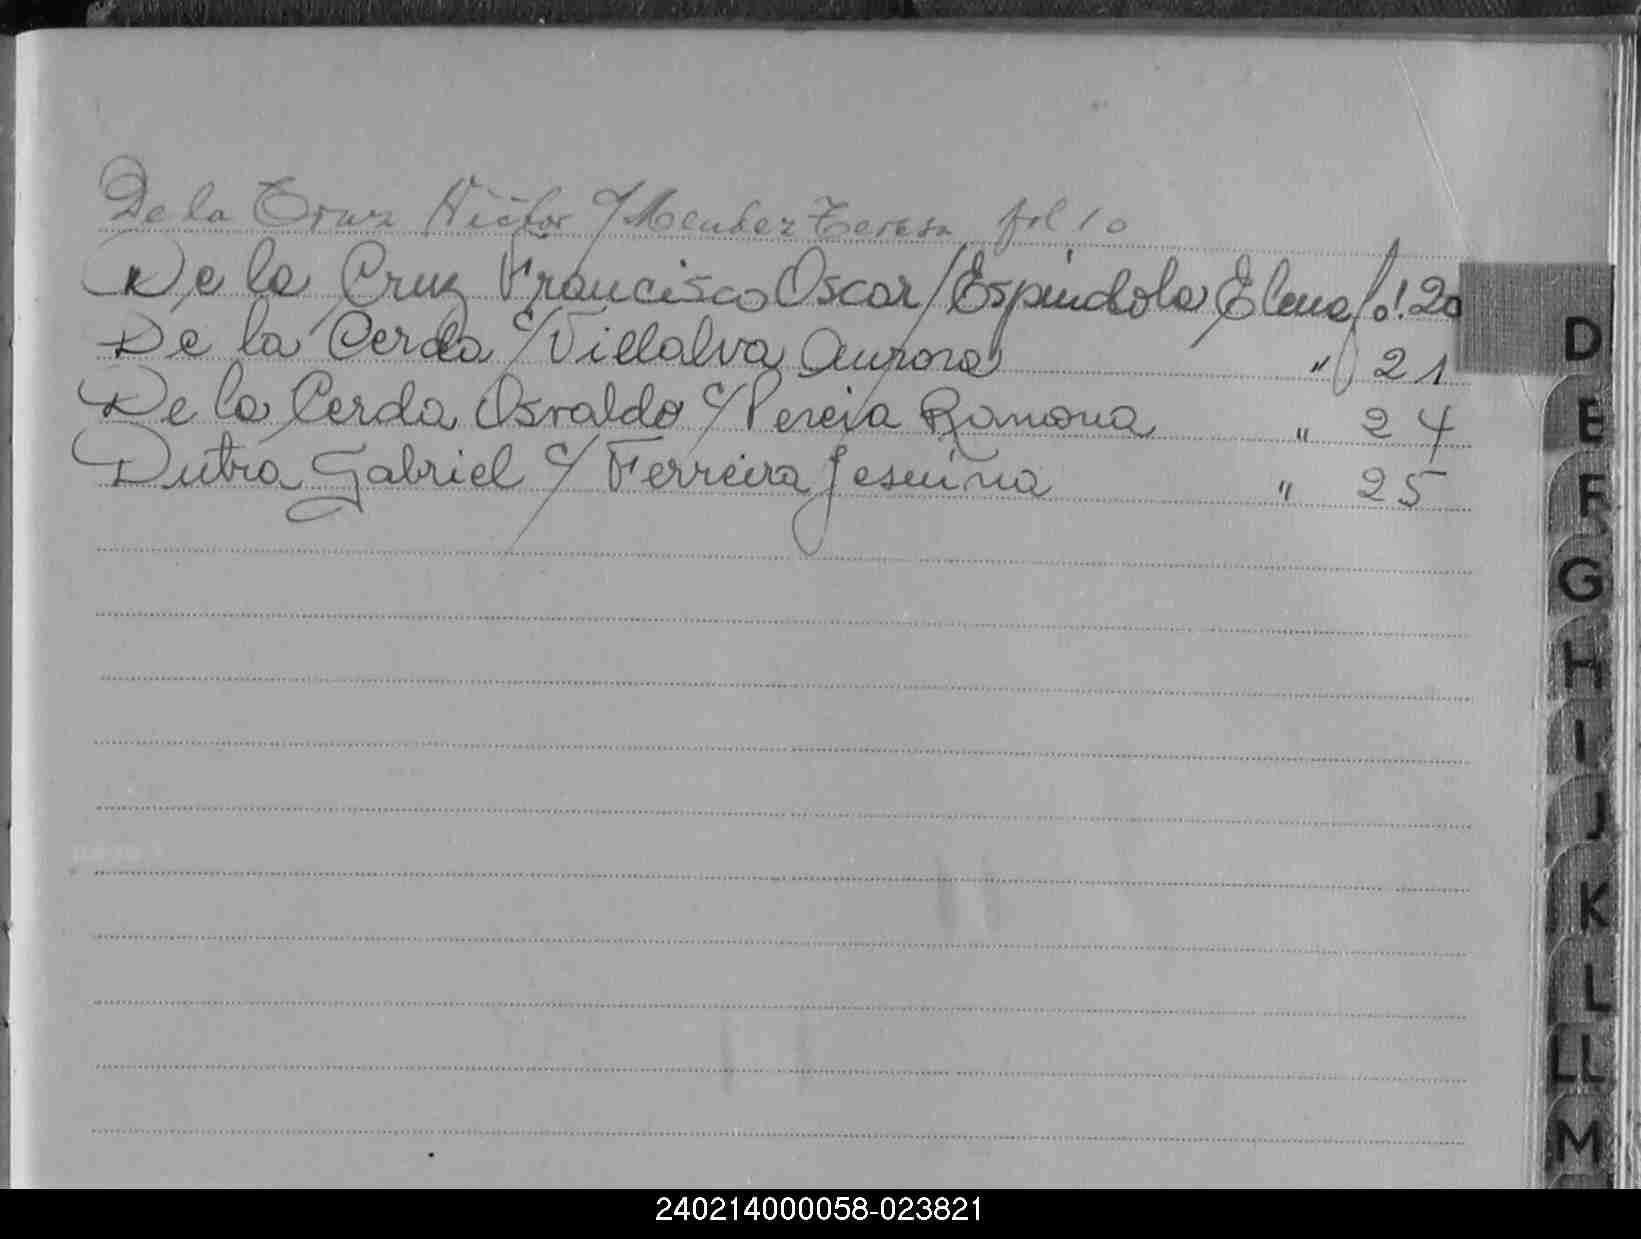 De la Cruz Victor c/ Mendez Teresa fol 10
De la Cruz Francisco Oscar / Espindola Elena fol. 20
De la Cerda c/ Villalva Aurora " 21
De la Cerda Osvaldo c/ Pereira Ramona " 24
Dutra Gabriel c/ Ferreira Jesuina " 25
D
E
F
G
H
I
J
K
L
LL
M
240214000058-023821